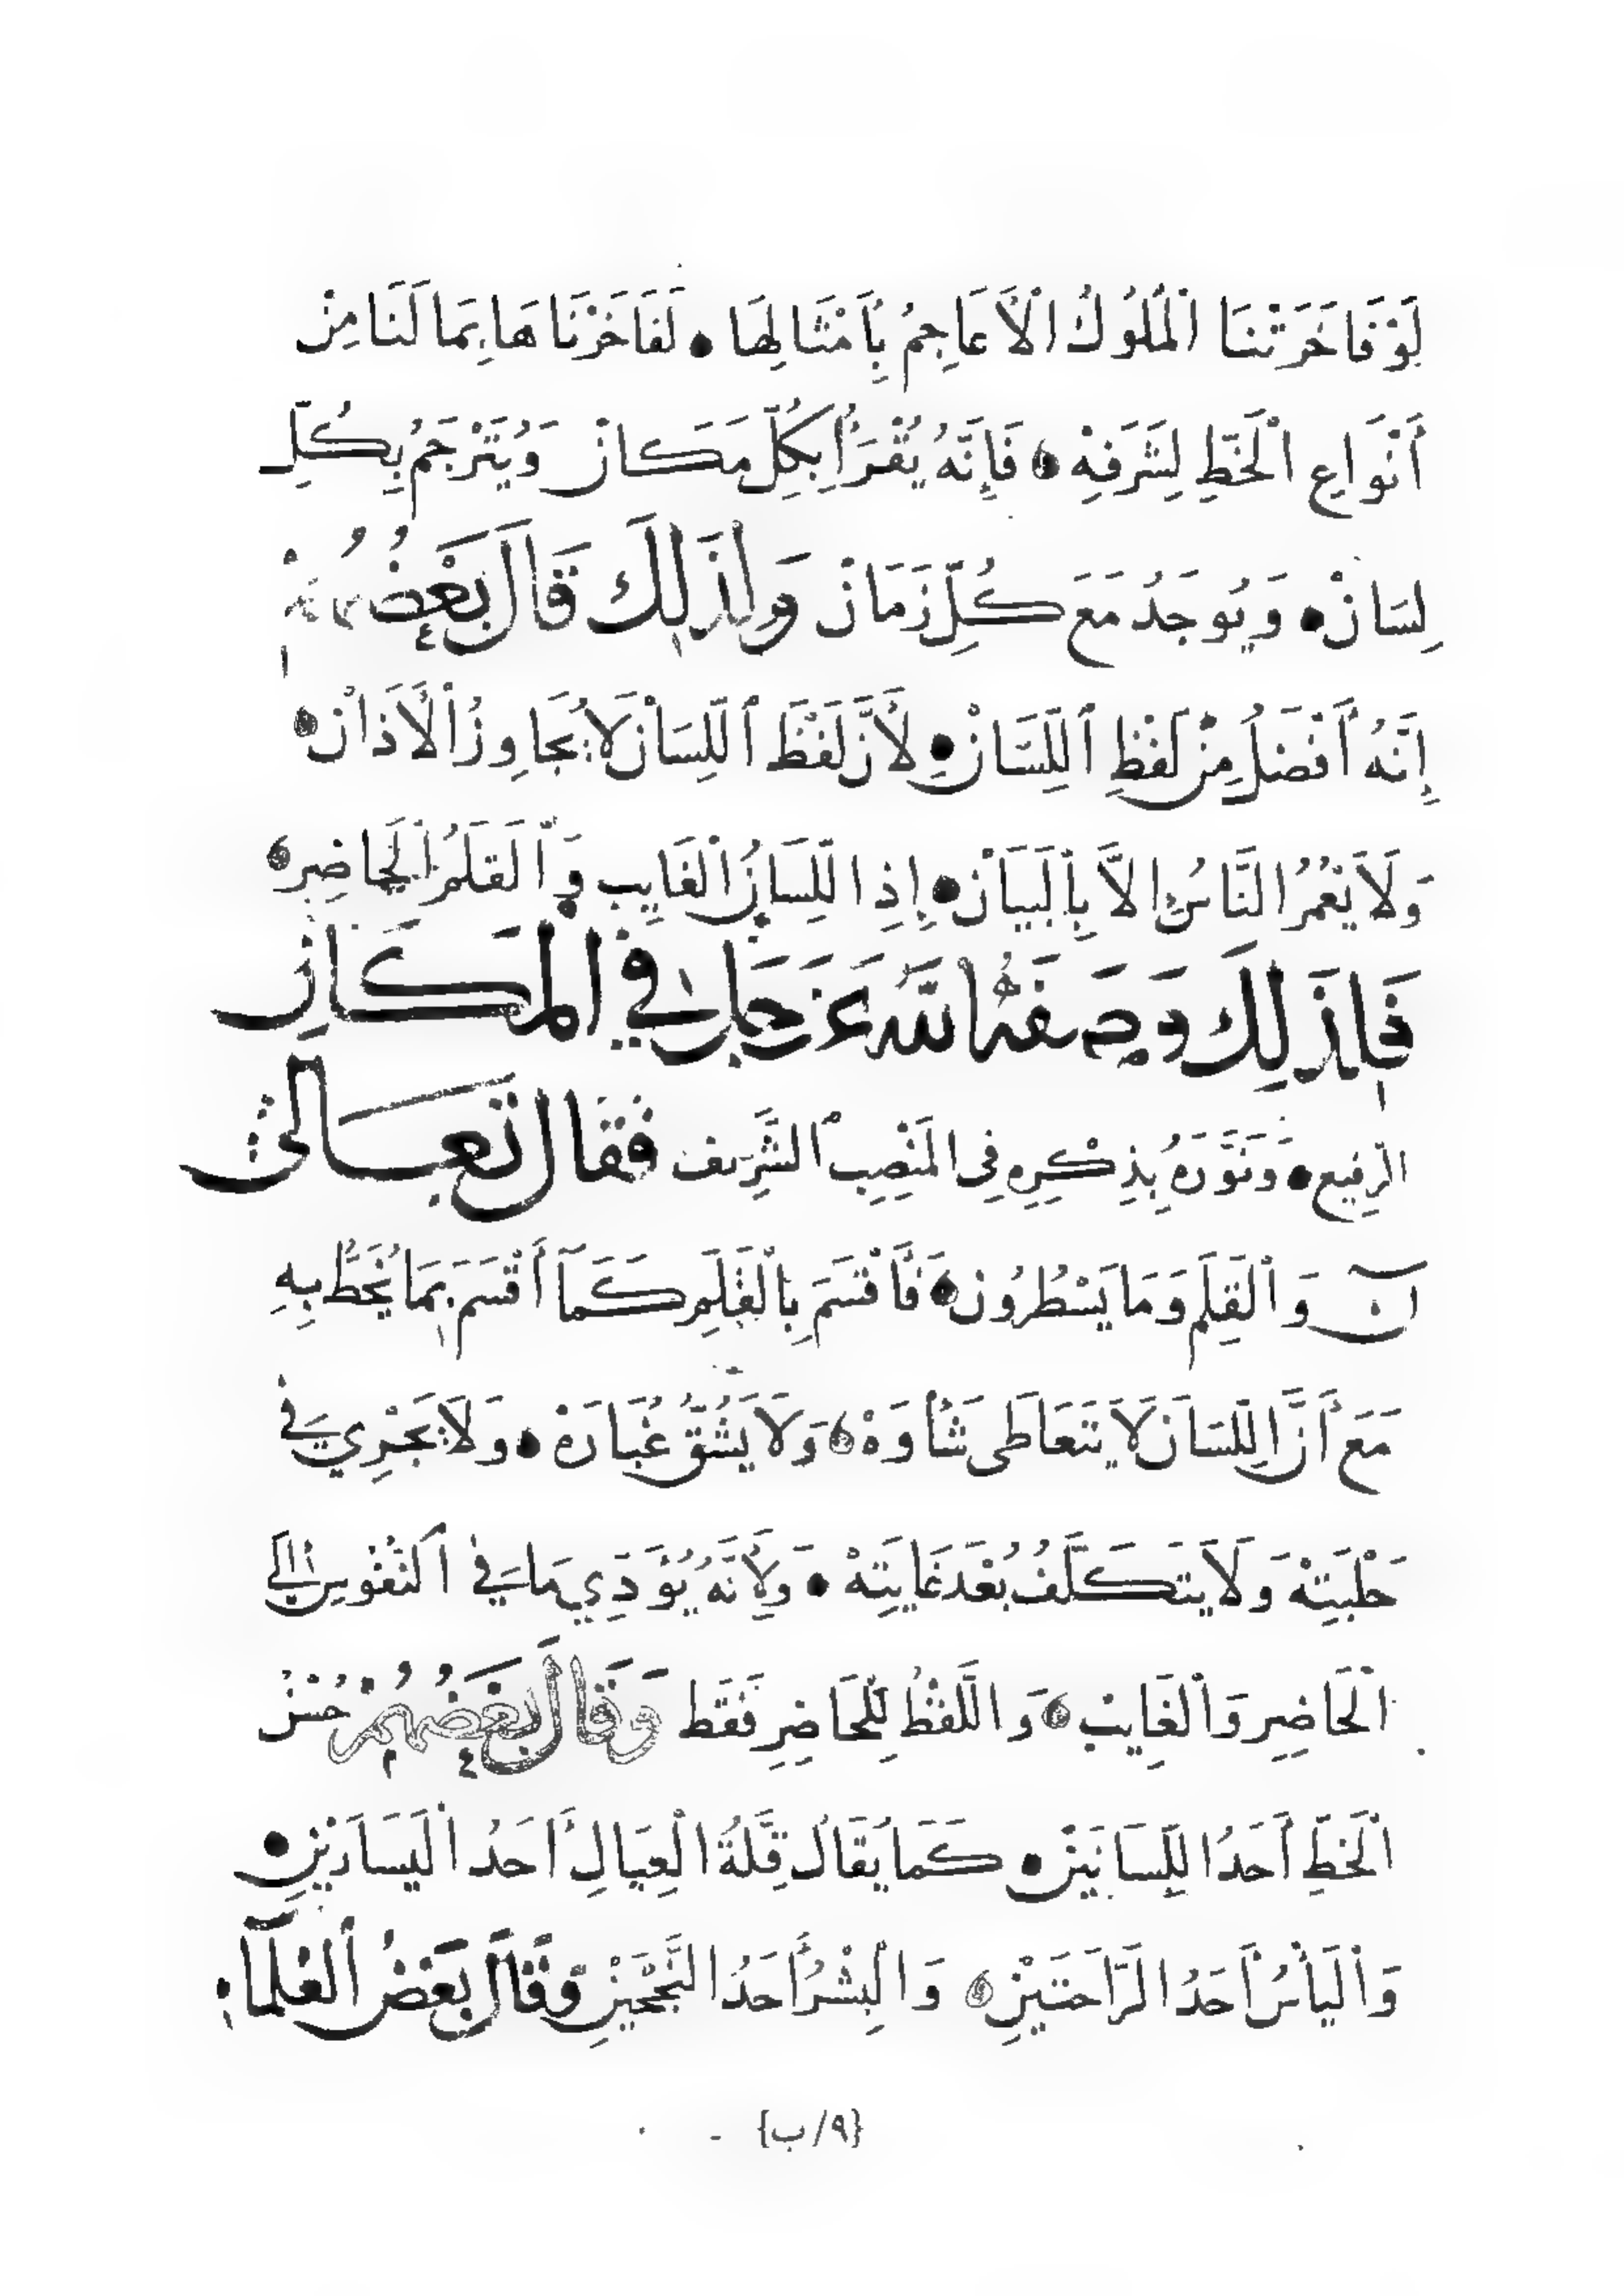 لَوْ فَاخَرَتْنَا الْمُلُوكُ الْأَعَاجِمُ بِأَمْثَالِهَا • لَفَاخَرْنَاهَا بِمَا لَنَا مِنْ
أَنْوَاعِ الْخَطِّ لِشَرَفِهِ • فَإِنَّهُ يُقْرَأُ بِكُلِّ مَكَانْ وَيُتَرْجَمُ بِكُلِّ
لِسَانْ • وَيُوجَدُ مَعَ كُلِّ زَمَانْ وَلِذَلِكَ قَالَ بَعْضُهُمْ
إِنَّهُ أَفْضَلُ مِنْ لَفْظِ اللِّسَانْ • لِأَنَّ لَفْظَ اللِّسَانْ لَا يُجَاوِزُ الْأَذَانْ •
وَلَا يَعُمُّ النَّاسُ إِلَّا بِالْبَيَانْ • إِذِ اللِّسَانُ الْغَايِبِ وَالْقَلَمُ الْحَاضِرِ •
فَلِذَلِكَ وَصَفَهُ اللّٰهُ عَزَّ وَجَلَّ فِي الْمَكَانِ
الرَّفِيعِ • وَنَوَّرَهُ بِذِكْرِهِ فِي الْمَنْصِبِ الشَّرِيف فَقَالَ تَعَالَى
نٓ وَالْقَلَمِ وَمَا يَسْطُرُونَ • فَأَقْسَمَ بِالْقَلَمِ كَمَا أَقْسَمَ بِمَا يُخَطُّ بِهِ
مَعَ أَنَّ اللِّسَانَ لَا يَتَعَاطَى شَأْوَهْ • وَلَا يَشُقُّ غُبَارَهْ • وَلَا يَجْرِي فِي
حَلْبَتِهْ وَلَا يَتَكَلَّفُ بُعْدَ غَايَتِهْ • وَلِأَنَّهُ يُؤَدِّي مَا فِي النُّفُوسِ إِلَى
الْحَاضِرِ وَالْغَايِبْ • وَاللَّفْظُ لِلْحَاضِرِ فَقَط وَقَالَ بَعْضُهُمْ حُسْنُ
الْخَطِّ أَحَدُ اللِّسَانَيْنْ • كَمَا يُقَالُ قِلَّةُ الْعِيَالِ أَحَدُ الْيَسَارَيْنِ •
وَالْيَأْسُ أَحَدُ الرَّاحَتَيْنِ • وَالْبِشْرُ أَحَدُ النُّجْحَيْنِ وَقَالَ بَعْضُ الْعُلَمَاءِ
{٩/ب}